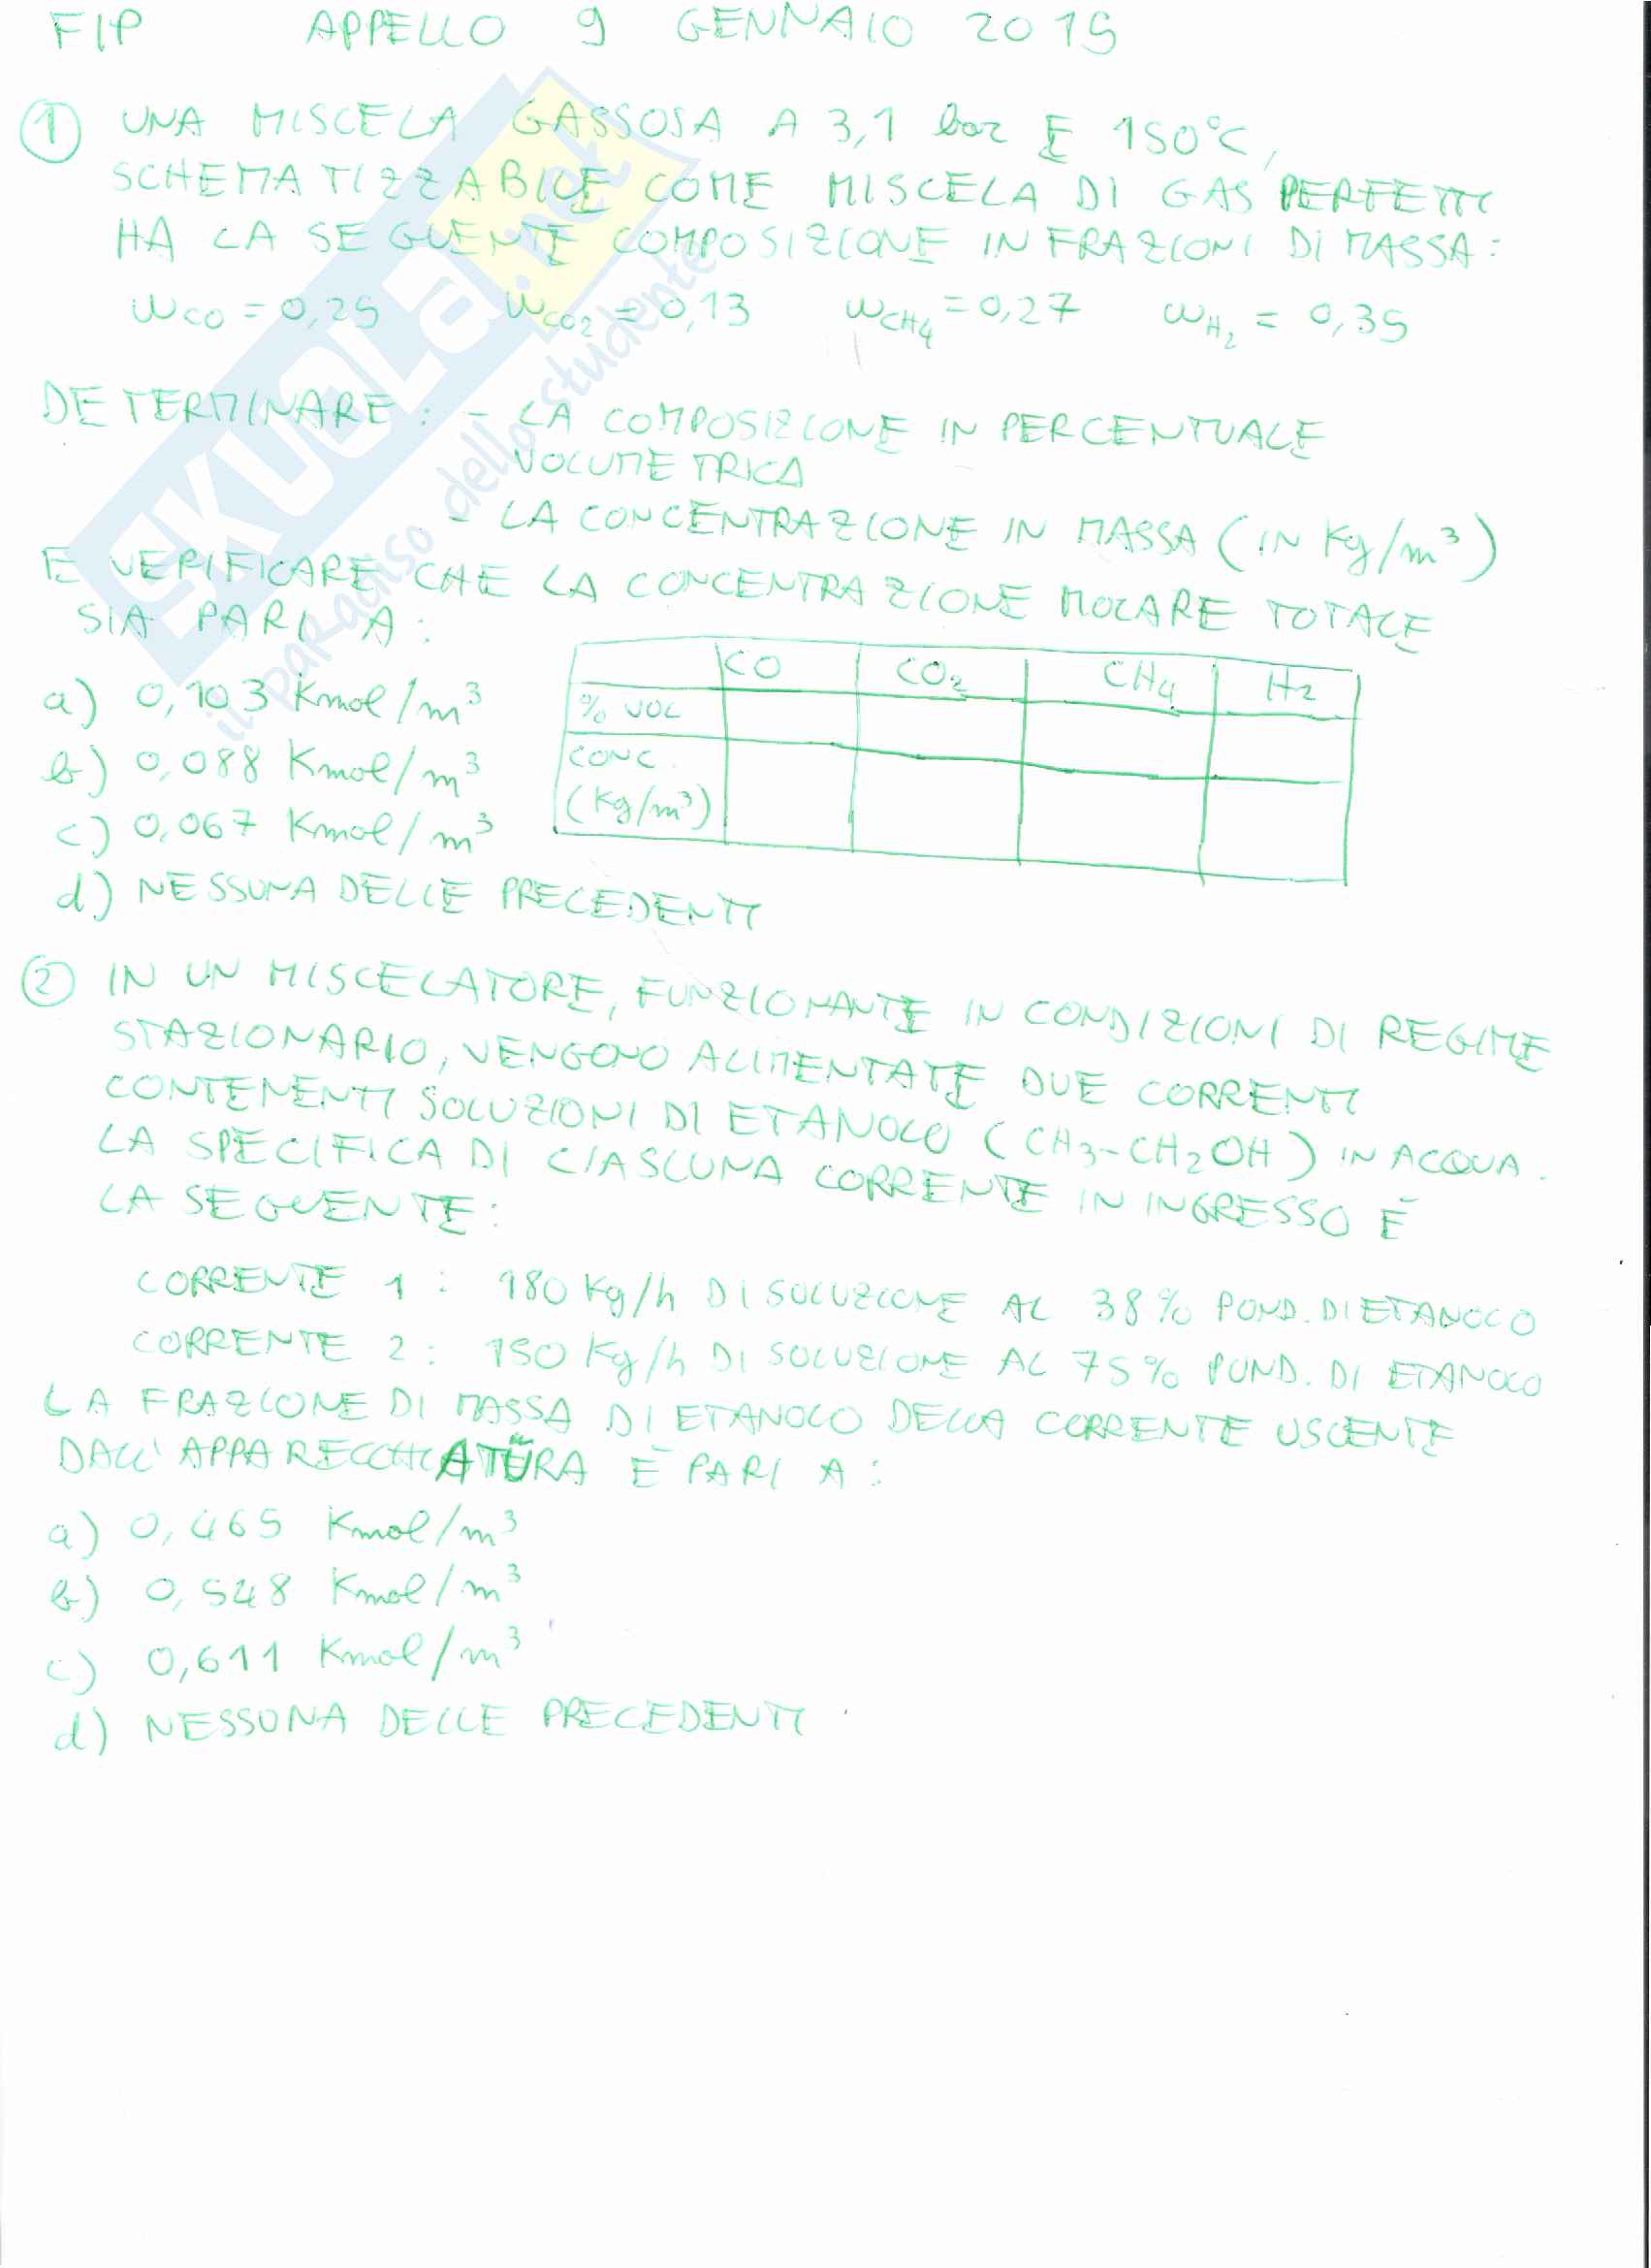 FIP APPELLO 9 GENNAIO 2015
① UNA MISCELA GASSOSA A 3,1 bar E 150°C,
SCHEMATIZZABILE COME MISCELA DI GAS PERFETTI
HA LA SEGUENTE COMPOSIZIONE IN FRAZIONI DI MASSA:
ωCO = 0,25 ωCO2 = 0,13 ωCH4 = 0,27 ωH2 = 0,35
DETERMINARE: - LA COMPOSIZIONE IN PERCENTUALE
VOLUMETRICA
- LA CONCENTRAZIONE IN MASSA (IN Kg/m³)
E VERIFICARE CHE LA CONCENTRAZIONE MOLARE TOTALE
SIA PARI A:
a) 0,103 Kmol/m³
b) 0,088 Kmol/m³
c) 0,067 Kmol/m³
d) NESSUNA DELLE PRECEDENTI
CO CO2 CH4 H2
% VOL
CONC.
(Kg/m³)
② IN UN MISCELATORE, FUNZIONANTE IN CONDIZIONI DI REGIME
STAZIONARIO, VENGONO ALIMENTATE DUE CORRENTI
CONTENENTI SOLUZIONI DI ETANOLO (CH3-CH2OH) IN ACQUA.
LA SPECIFICA DI CIASCUNA CORRENTE IN INGRESSO È
LA SEGUENTE:
CORRENTE 1: 180 Kg/h DI SOLUZIONE AL 38% POND. DI ETANOLO
CORRENTE 2: 150 Kg/h DI SOLUZIONE AL 75% POND. DI ETANOLO
LA FRAZIONE DI MASSA DI ETANOLO DELLA CORRENTE USCENTE
DALL'APPARECCHIATURA È PARI A:
a) 0,465 Kmol/m³
b) 0,548 Kmol/m³
c) 0,611 Kmol/m³
d) NESSUNA DELLE PRECEDENTI
SKUOLA.net
il paradiso dello studente